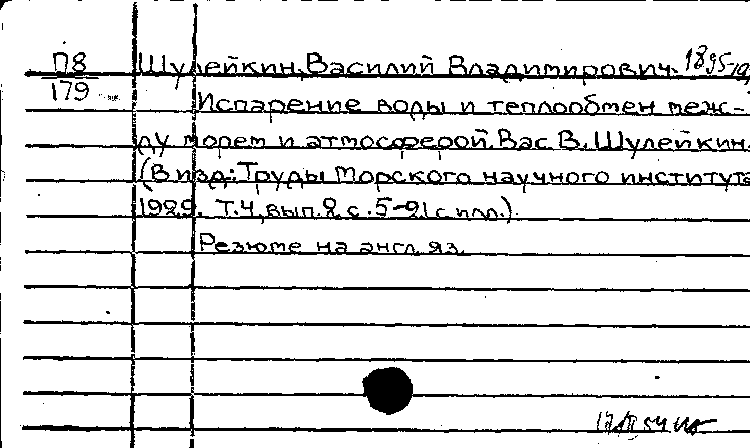 П8
179
Шулейкин, Василий Владимирович. 1895-19
Испарение воды и теплообмен меж-
ду морем и атмосферой. Вас. В. Шулейкин.
(В изд.: Труды Морского научного института
1929. Т. 4, вып. 2 с. 5-21 с илл.).
Резюме на англ. яз.